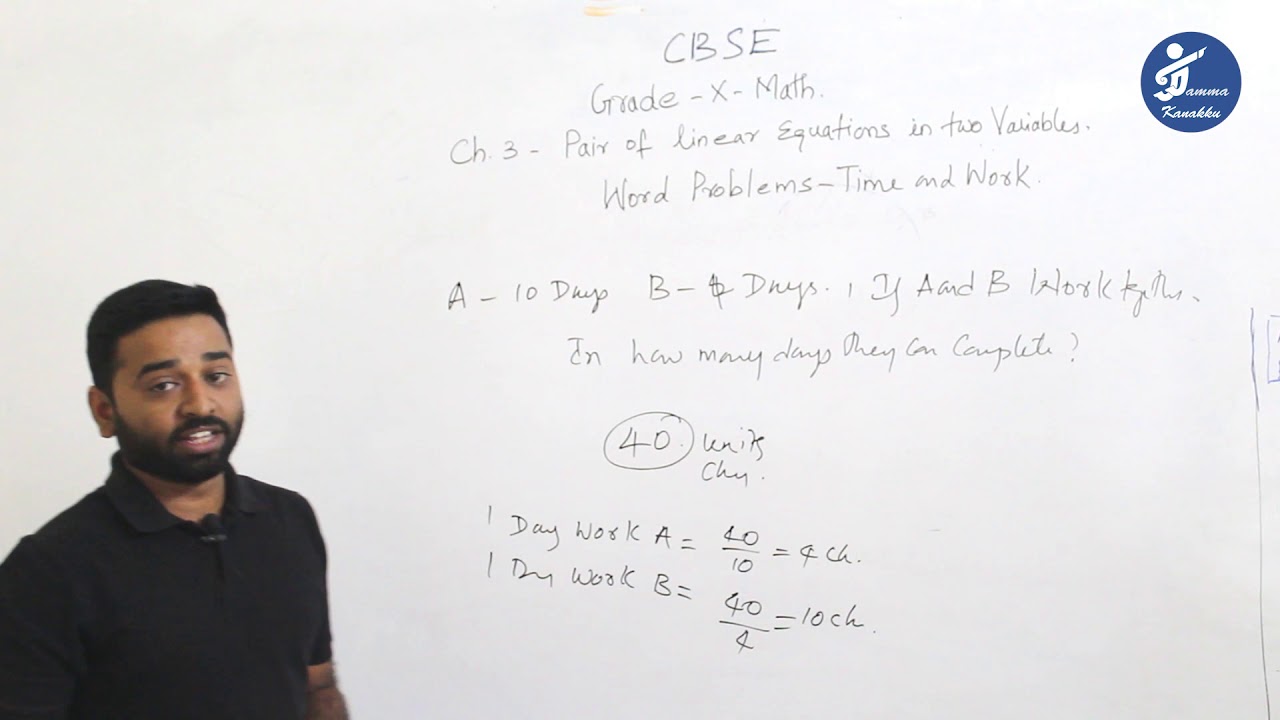 CBSE
Grade - X - Math.
Ch. 3 - Pair of linear Equations in two Variables.
Word Problems - Time and Work.
A - 10 Days B - 4 Days. , If A and B Work
In how many days they can complete ?
40 units
1 Day Work A = 40/10 = 4 ch.
1 Day Work B = 40/4 = 10 ch.
Tamma
Kanakku